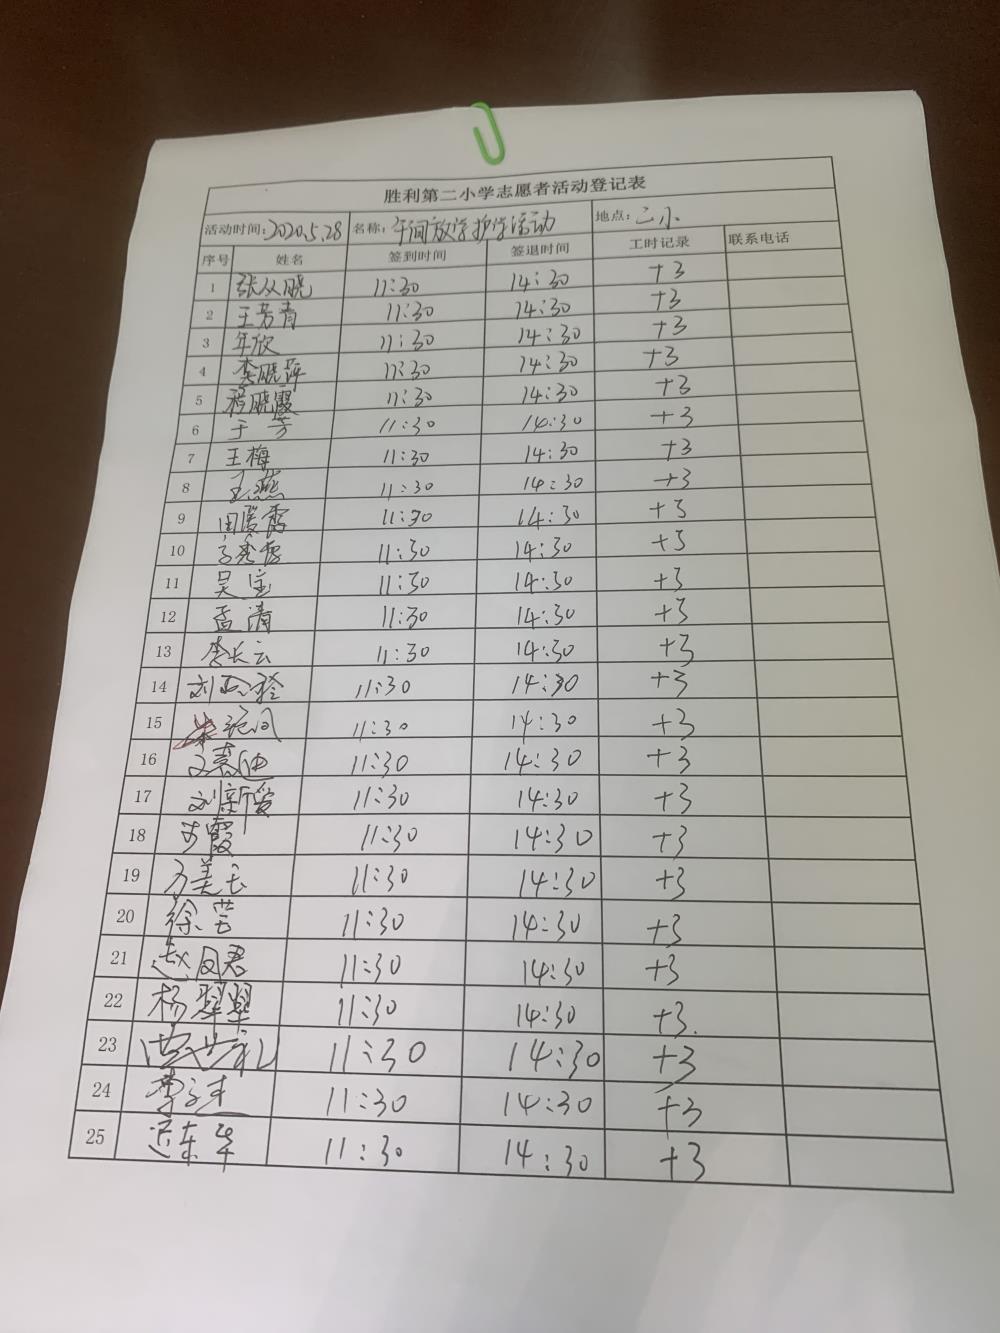 胜利第二小学志愿者活动登记表
活动时间:2020.5.28 名称:午间放学护学活动 地点:二小
序号 姓名 签到时间 签退时间 工时记录 联系电话
1 张从晓 11:30 14:30 +3
2 王芳青 11:30 14:30 +3
3 年欣 11:30 14:30 +3
4 娄晓萍 11:30 14:30 +3
5 程晓霞 11:30 14:30 +3
6 于芳 11:30 14:30 +3
7 王梅 11:30 14:30 +3
8 王燕 11:30 14:30 +3
9 田爱霞 11:30 14:30 +3
10 11:30 14:30 +3
11 吴宝 11:30 14:30 +3
12 孟清 11:30 14:30 +3
13 李长云 11:30 14:30 +3
14 刘 11:30 14:30 +3
15 11:30 14:30 +3
16 11:30 14:30 +3
17 刘新爱 11:30 14:30 +3
18 霞 11:30 14:30 +3
19 万美玉 11:30 14:30 +3
20 徐芸 11:30 14:30 +3
21 赵凤君 11:30 14:30 +3
22 杨翠翠 11:30 14:30 +3.
23 11:30 14:30 +3
24 李 11:30 14:30 +3
25 迟东华 11:30 14:30 +3